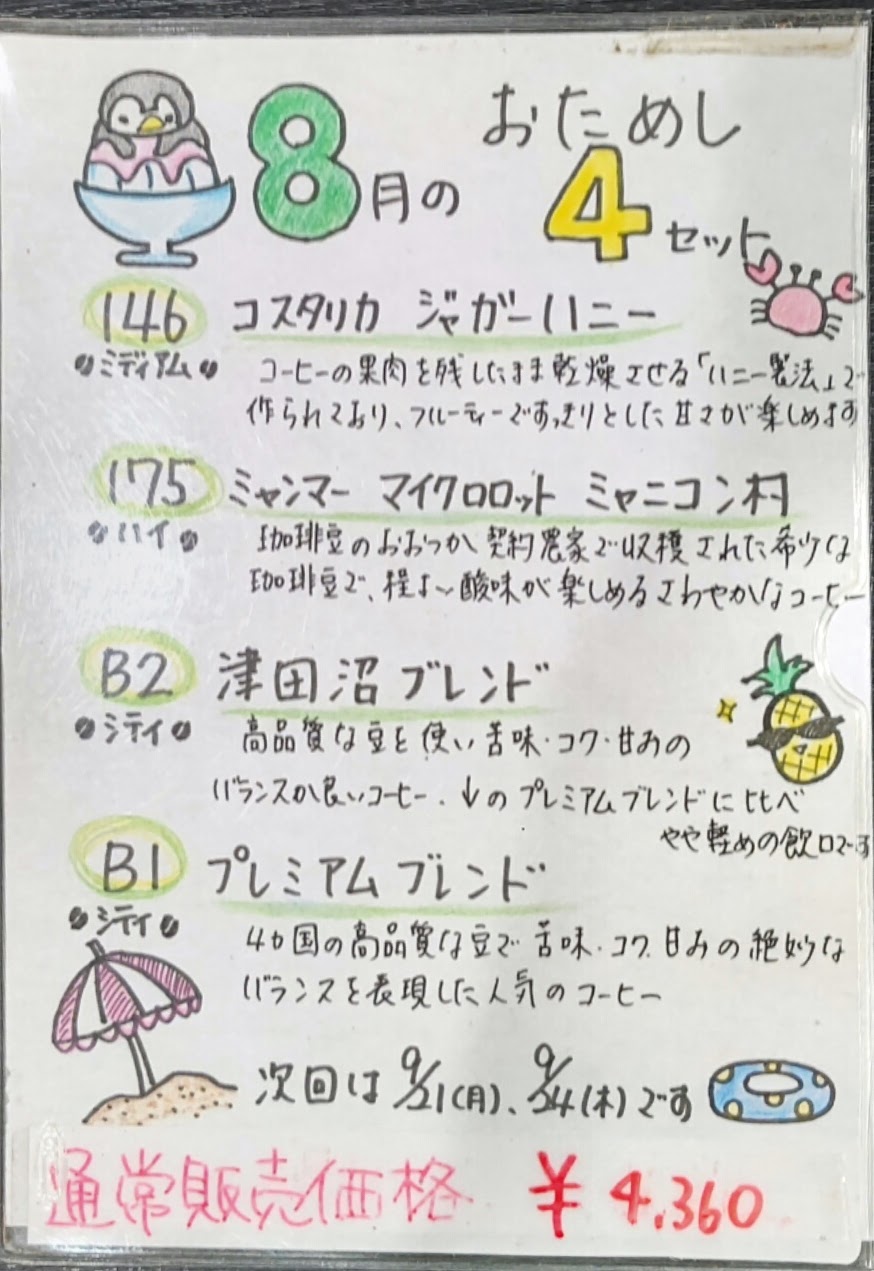 8月の おためし
4セット
146 コスタリカ ジャガーハニー
ミディアム
コーヒーの果肉を残したまま乾燥させる「ハニー製法」で
作られており、フルーティーですっきりとした甘さが楽しめます
175 ミャンマー マイクロロット ミャニコン村
ハイ
珈琲豆のおおつか 契約農家で収穫された希少な
珈琲豆で、程よい酸味が楽しめるさわやかなコーヒー
B2 津田沼ブレンド
シティ
高品質な豆を使い苦味・コク・甘みの
バランスが良いコーヒー。↓のプレミアムブレンドに比べ
やや軽めの飲口です
B1 プレミアムブレンド
シティ
4カ国の高品質な豆で苦味・コク・甘みの絶妙な
バランスを表現した人気のコーヒー
次回は 9/21(月)、9/24(木)です
通常販売価格 ¥4,360